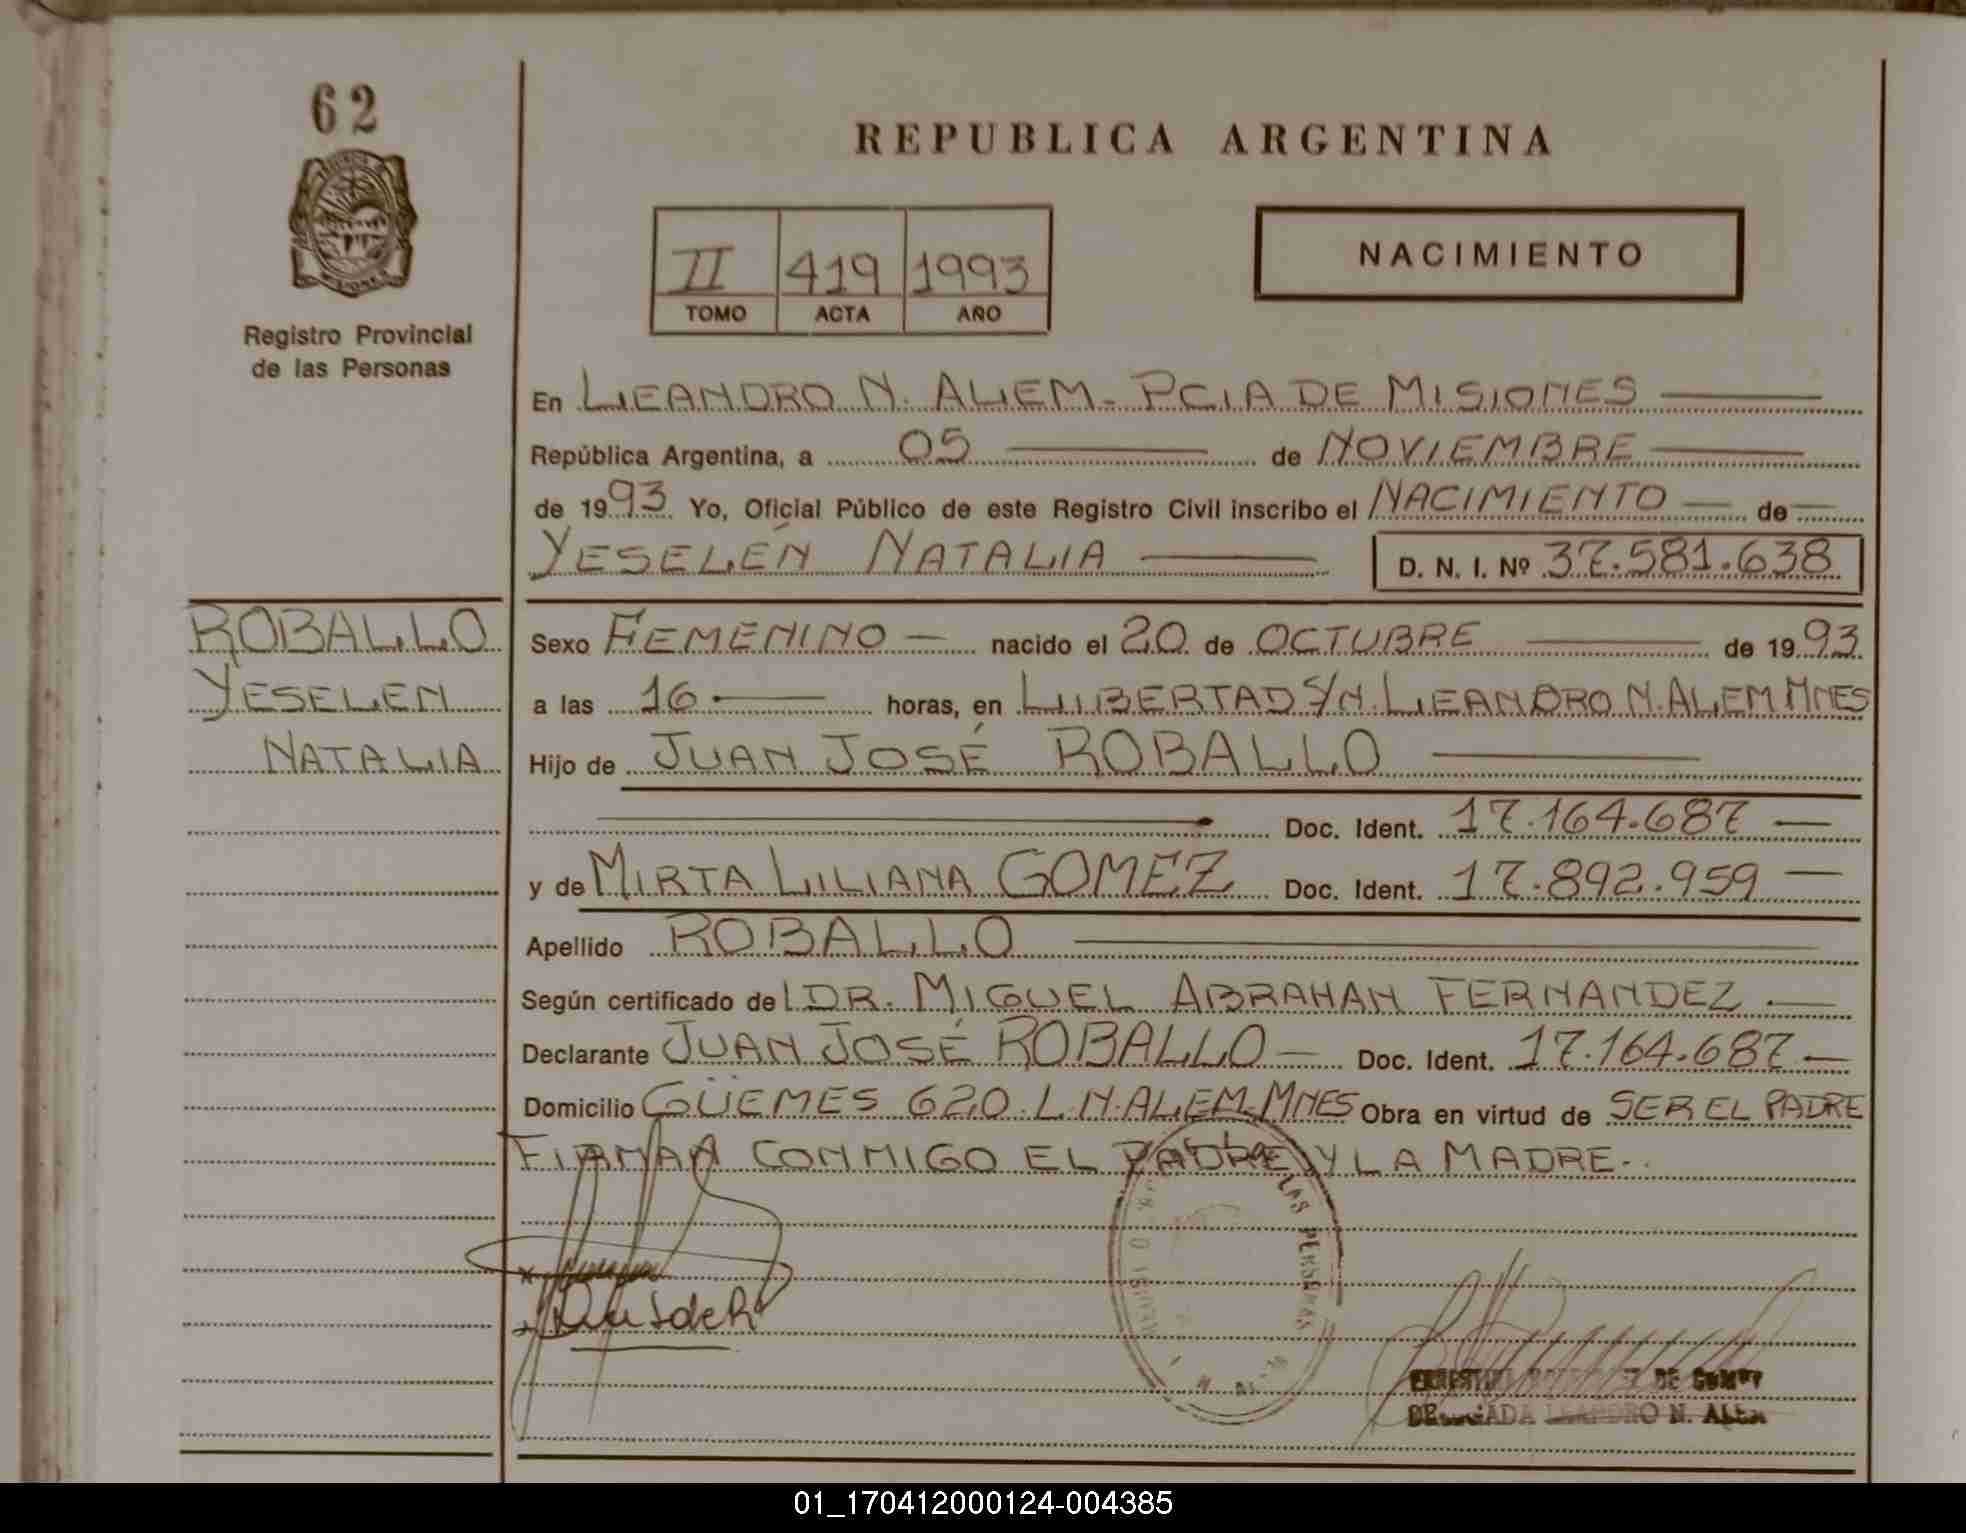 62
REPUBLICA ARGENTINA
II 419 1993
TOMO ACTA AÑO
NACIMIENTO
Registro Provincial
de las Personas
En LEANDRO N. ALEM - PCIA DE MISIONES
República Argentina, a 05 de NOVIEMBRE
de 1993 Yo, Oficial Público de este Registro Civil inscribo el NACIMIENTO de
YESELÉN NATALIA D. N. I. Nº 37.581.638
ROBALLO
YESELEN
NATALIA
Sexo FEMENINO nacido el 20 de OCTUBRE de 1993
a las 16 horas, en LIBERTAD S/N. LEANDRO N. ALEM MNES
Hijo de JUAN JOSÉ ROBALLO
Doc. Ident. 17.164.687
y de MIRTA LILIANA GOMEZ Doc. Ident. 17.892.959
Apellido ROBALLO
Según certificado del DR. MIGUEL ABRAHAN FERNANDEZ
Declarante JUAN JOSÉ ROBALLO Doc. Ident. 17.164.687
Domicilio GÜEMES 620 L.N. ALEM-MNES Obra en virtud de SER EL PADRE
FIRMAN CONMIGO EL PADRE Y LA MADRE.
LAS PERSONAS
DE
DELEGADA LEANDRO N. ALEM
01_170412000124-004385